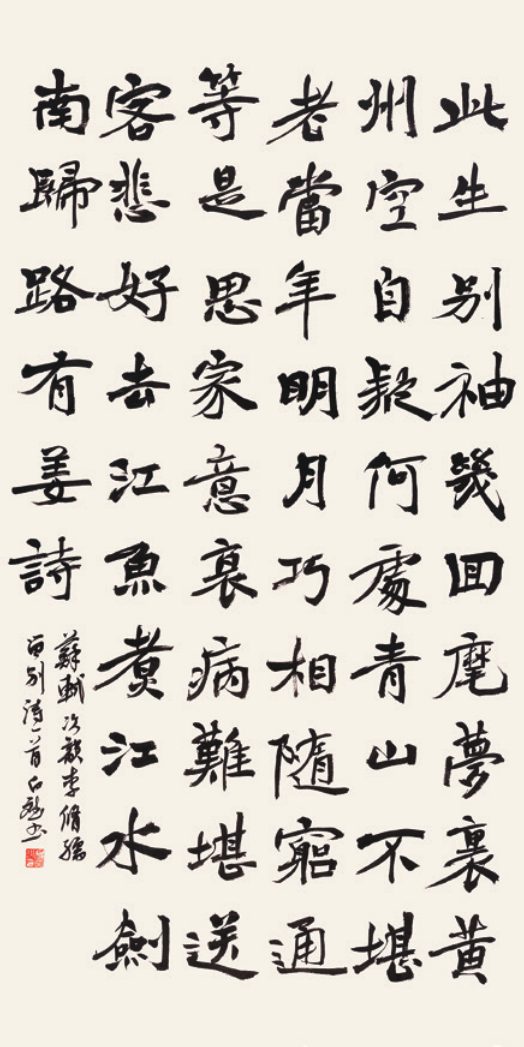 此生别袖幾回麾夢裏黄
州空自疑何處青山不堪
老當年明月巧相隨窮通
等是思家意衰病難堪送
客悲好去江魚煮江水劍
南歸路有姜詩
蘇軾次韻李脩孺
留别詩一首 书